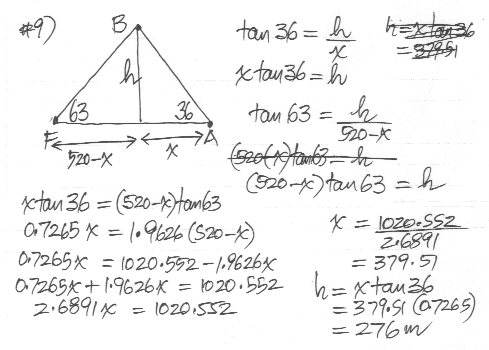 #9)
B
h
63
36
F
A
520-x
x
tan 36 = h/x
x tan 36 = h
tan 63 = h/(520-x)
(520(x) tan 63 = h
(520-x) tan 63 = h
h = x tan 36
= 379.51
x tan 36 = (520-x) tan 63
0.7265 x = 1.9626 (520-x)
0.7265x = 1020.552 - 1.9626x
0.7265x + 1.9626x = 1020.552
2.6891x = 1020.552
x = 1020.552/2.6891
= 379.51
h = x tan 36
= 379.51 (0.7265)
= 276 m